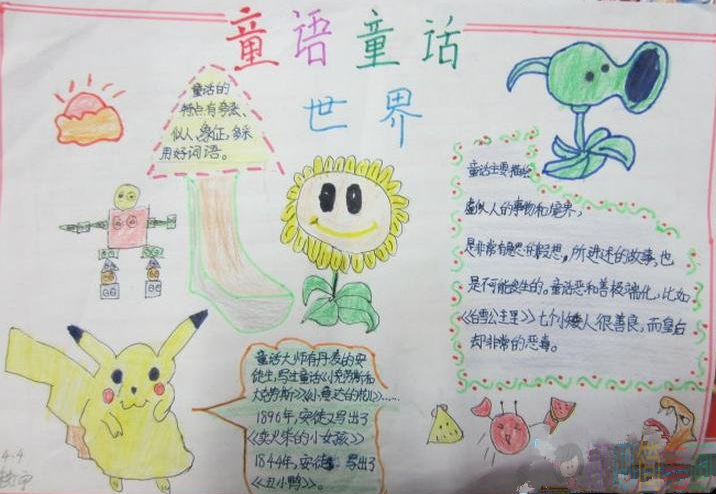 童语童话
世界
童话的
特点有夸张、
似人、象征,多采
用好词语。
童话主要描绘
虚似人的事物和境界,
是非常有的假想,所进述的故事,也
是不可能发生的。童话恶和善极端化,比如
《白雪公主里》七个小矮人很善良,而皇后
却非常的恶毒。
童话大师有丹麦的安
徒生,写生童话《小克劳斯和
大克劳斯》《小意达的花儿》……
1896年,安徒又写出了
《卖火柴的小女孩》
1844年,安徒 写出了
《丑小鸭》。
4.4